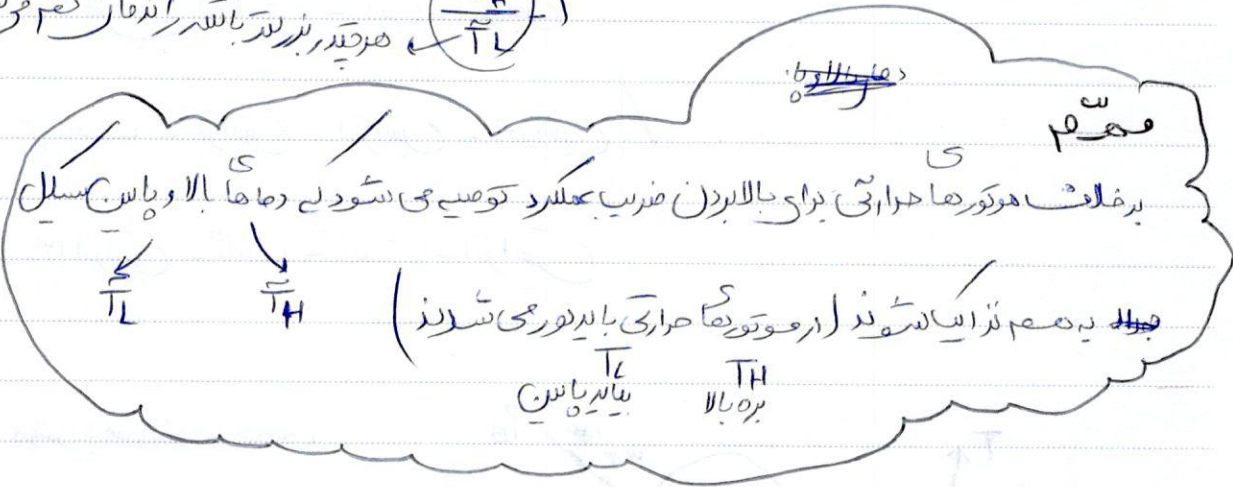 T̄H / T̄L هرچقدر بزرگتر باشد راندمان کم می
مهم
برخلاف موتورهای حرارتی برای بالا بردن ضریب عملکرد توصیه می شود که دماهای بالا و پایین سیکل
T̄L T̄H
به هم نزدیک شوند (در موتورهای حرارتی باید دور می شدند)
TH بره بالا TL بیاید پایین